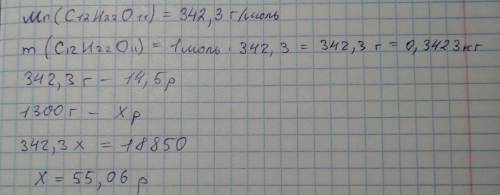 Mr(C12H22O11) = 342,3 г/моль
m(C12H22O11) = 1 моль · 342,3 = 342,3 г = 0,3423 кг
342,3 г - 14,5 р
1300 г - Хр
342,3 х = 18850
Х = 55,06 р